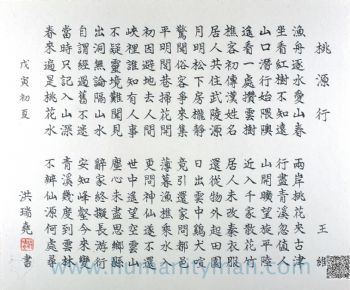 桃源行 王維
漁舟逐水愛山春 兩岸青溪夾古津
坐看紅樹不知遠 行盡青溪忽值人
山口潛行始隈隩 山開曠望旋平陸
遙看一處攢雲樹 近入千家散花竹
樵客初傳漢姓名 居人未改秦衣服
居人共住武陵源 還從物外起田園
月明松下房櫳靜 日出雲中雞犬喧
驚聞俗客爭來集 競引還家問都邑
平明閭巷掃花開 薄暮漁樵乘水入
初因避地去人間 更問神仙遂不還
峽裡誰知有人事 世中遙望空雲山
不疑靈境難聞見 塵心未盡思鄉縣
出洞無論隔山水 辭家終擬長游衍
自謂經過舊不迷 安知峰壑今來變
當時只記入山深 青溪幾度到雲林
春來遍是桃花水 不辨仙源何處尋
戊寅初夏 洪瑞堯書
www.humanityman.com